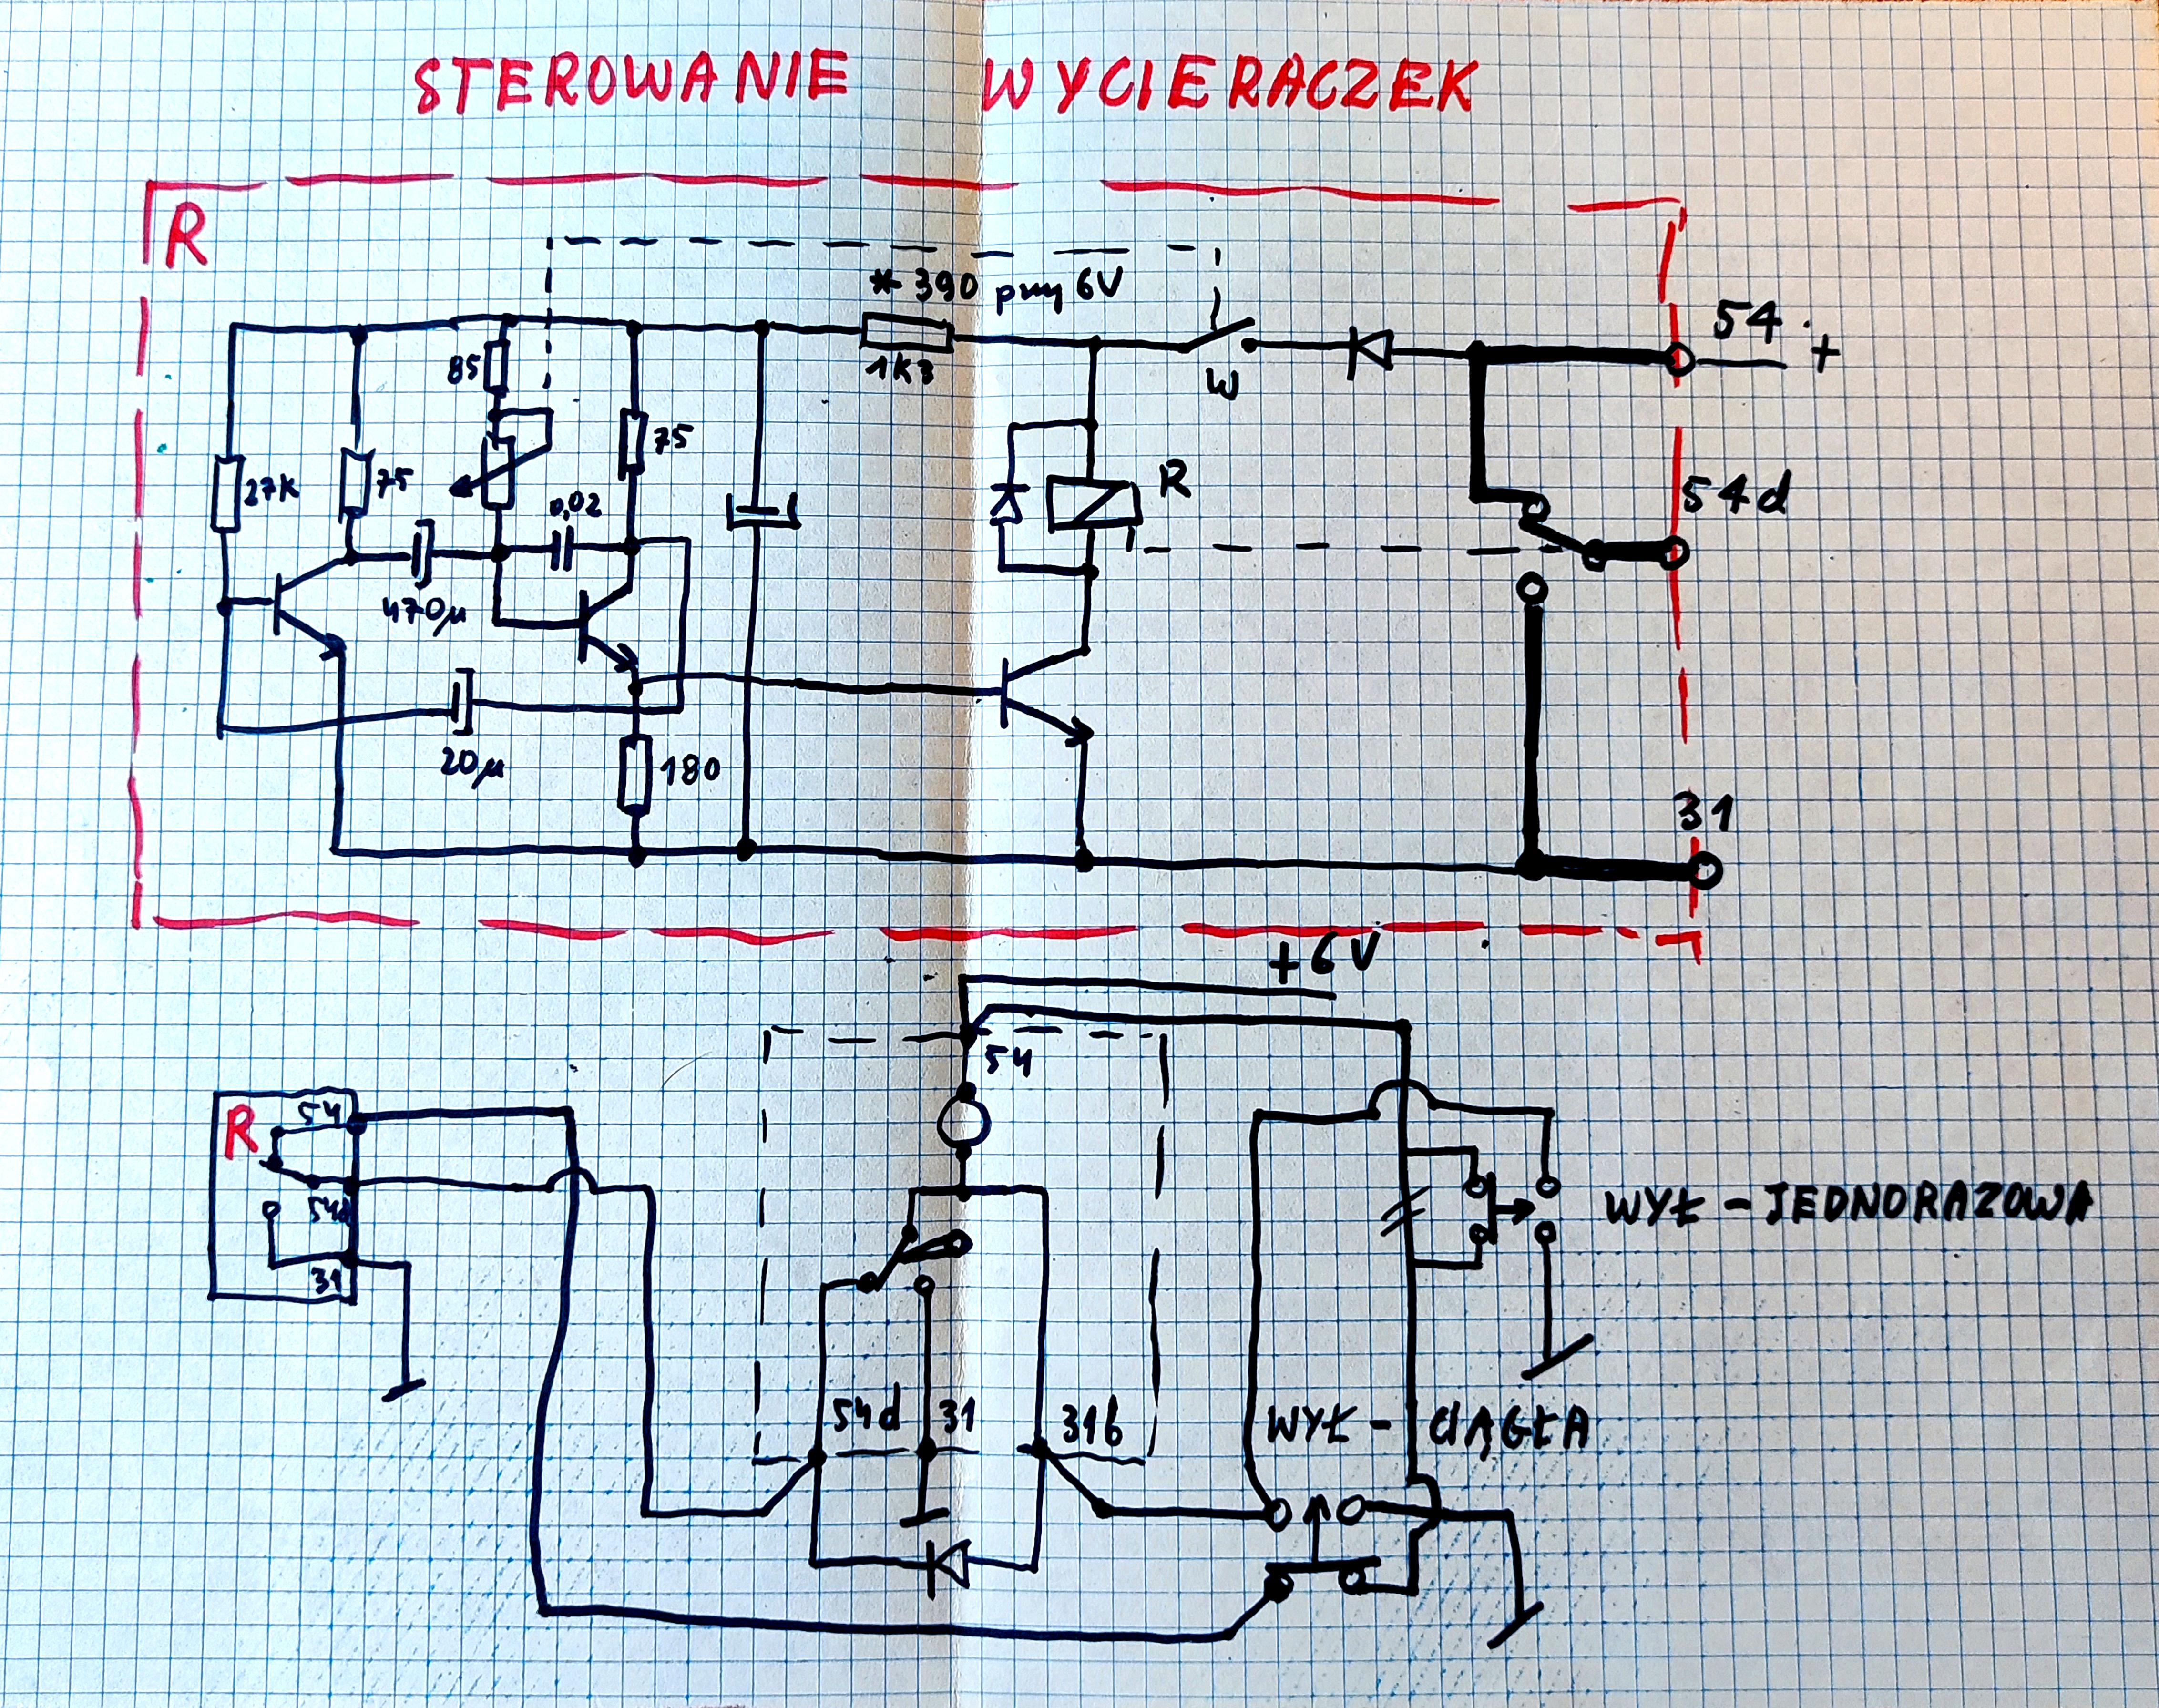 STEROWANIE WYCIERACZEK
R
* 390 przy 6V
54 +
85
1K3
W
27K
75
75
0,02
R
54d
470µ
20µ
180
31
+6V
54
R
54
54d
31
WYŁ - JEDNORAZOWA
54d
31
31b
WYŁ - CIĄGŁA